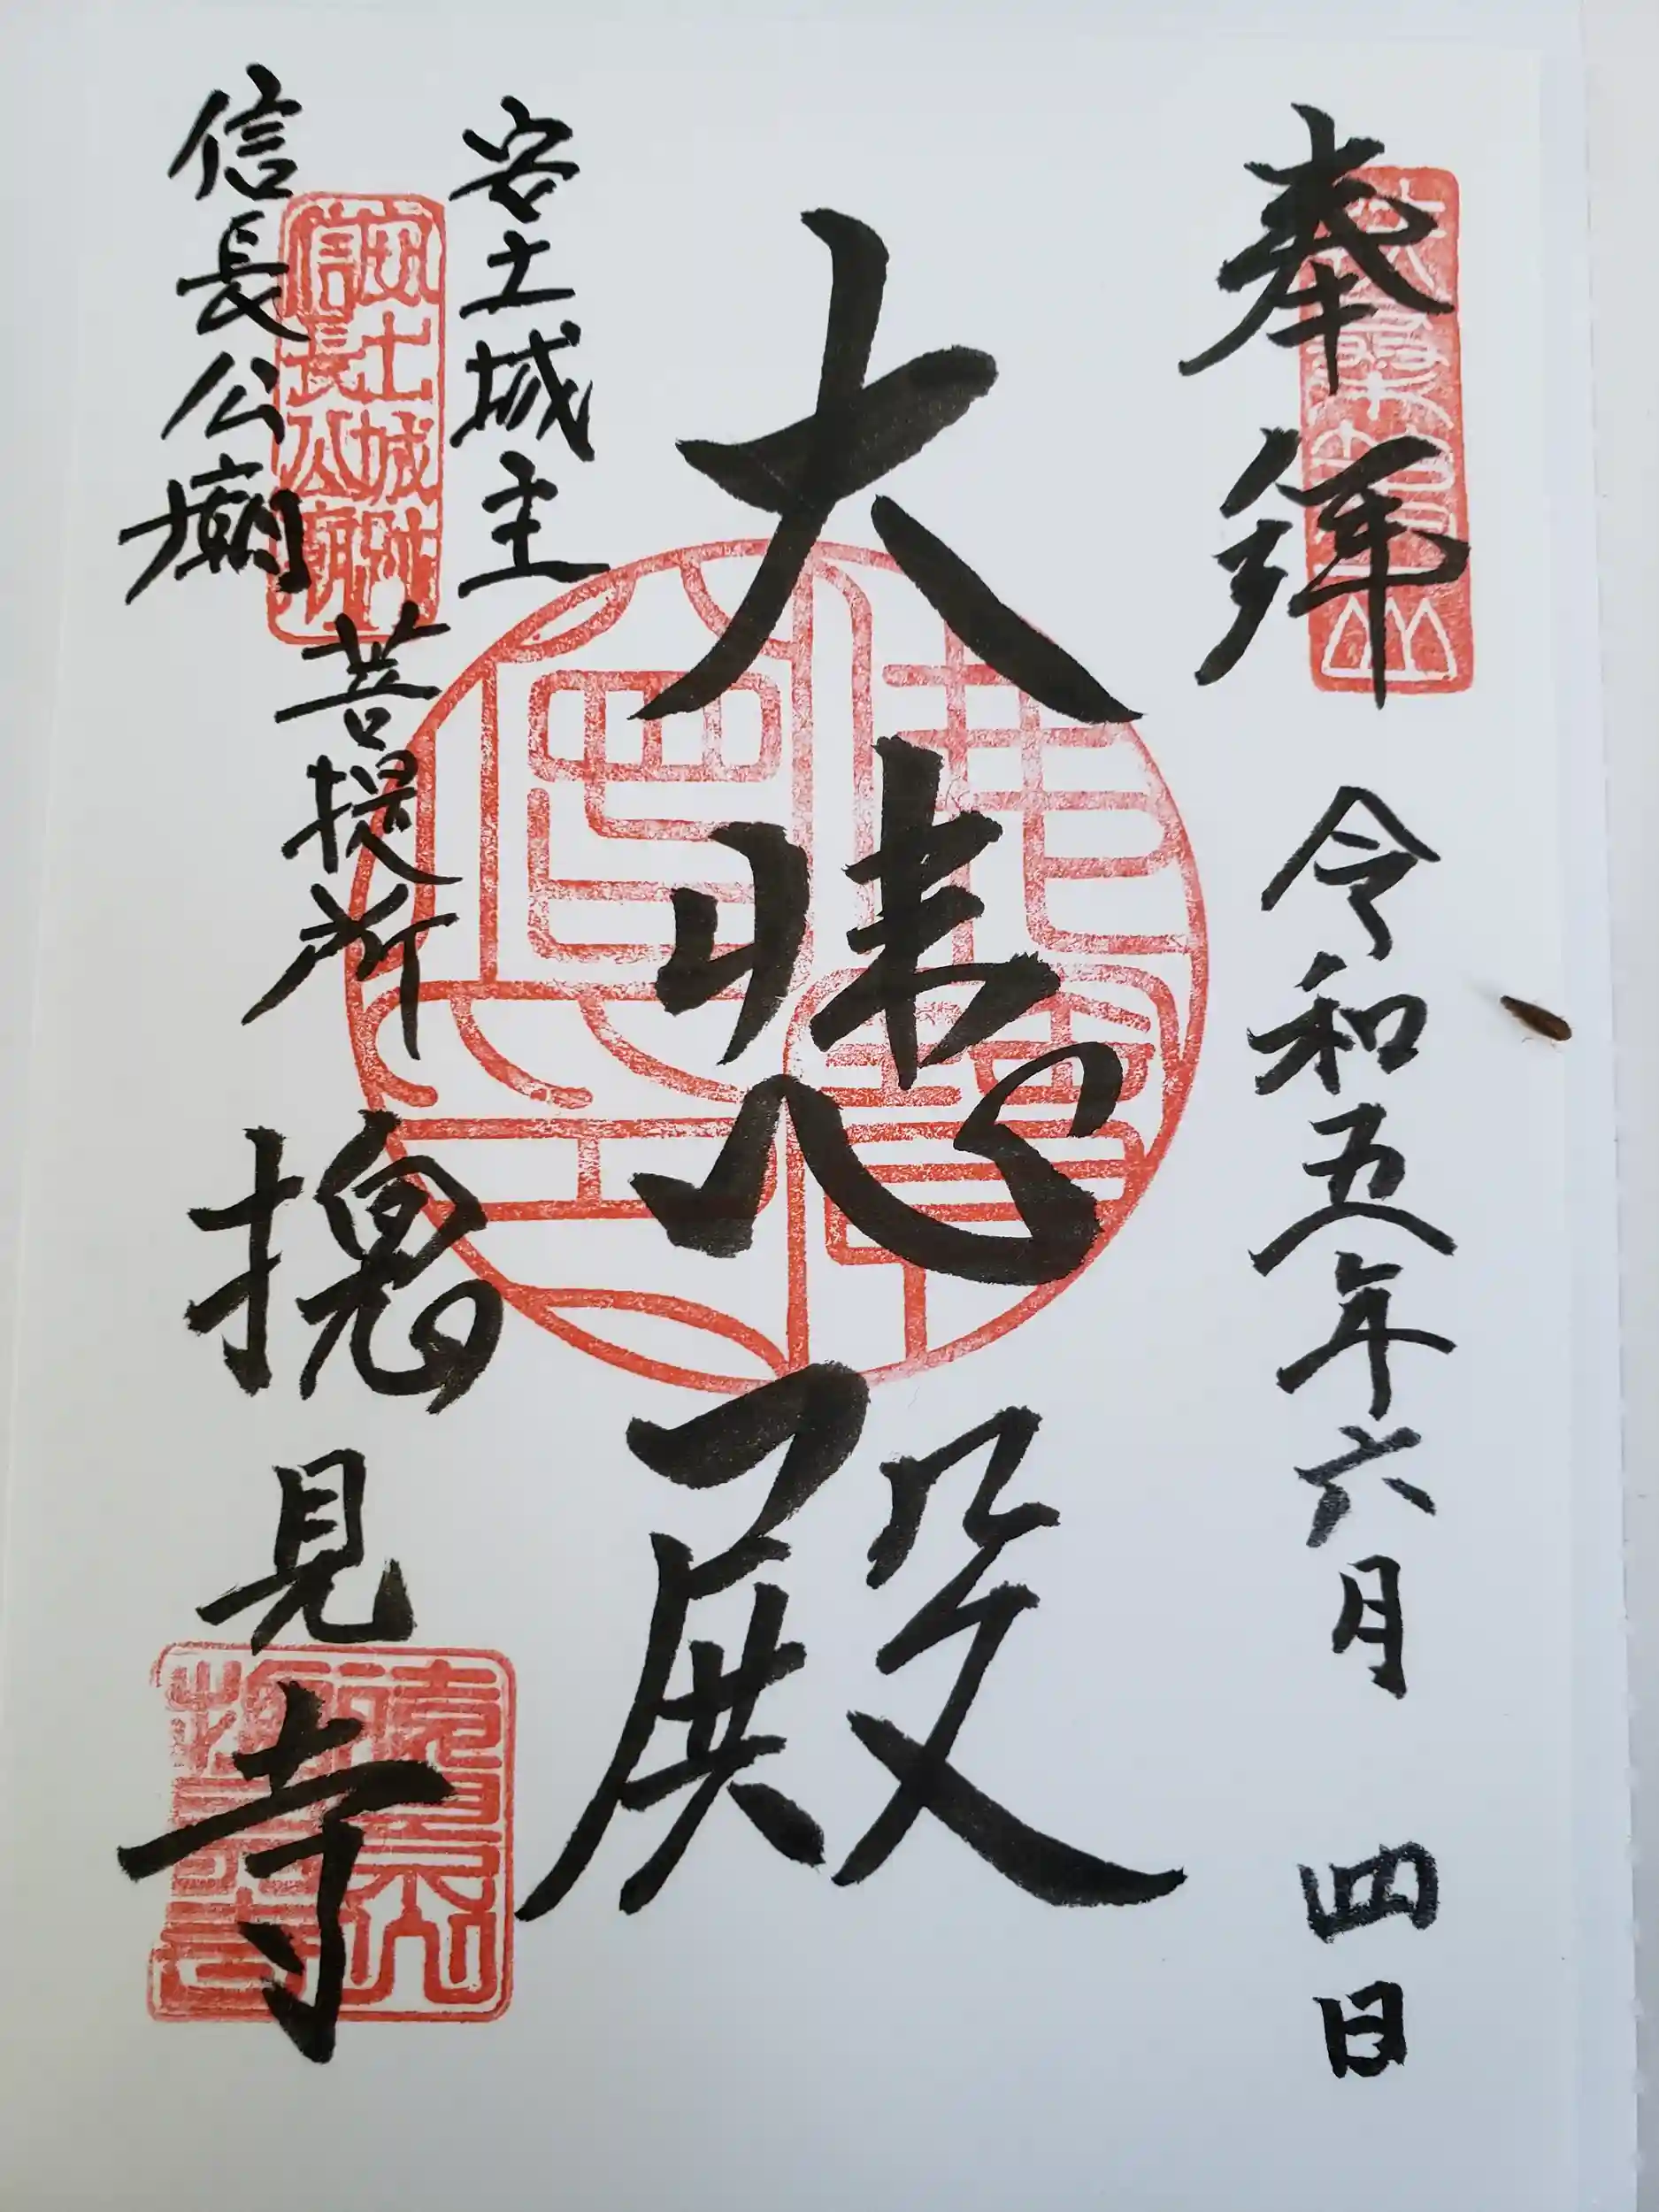 奉拝
令和五年六月 四日
大悲殿
安土城主
信長公廟
菩提所
摠見寺
安土城趾
信長公廟